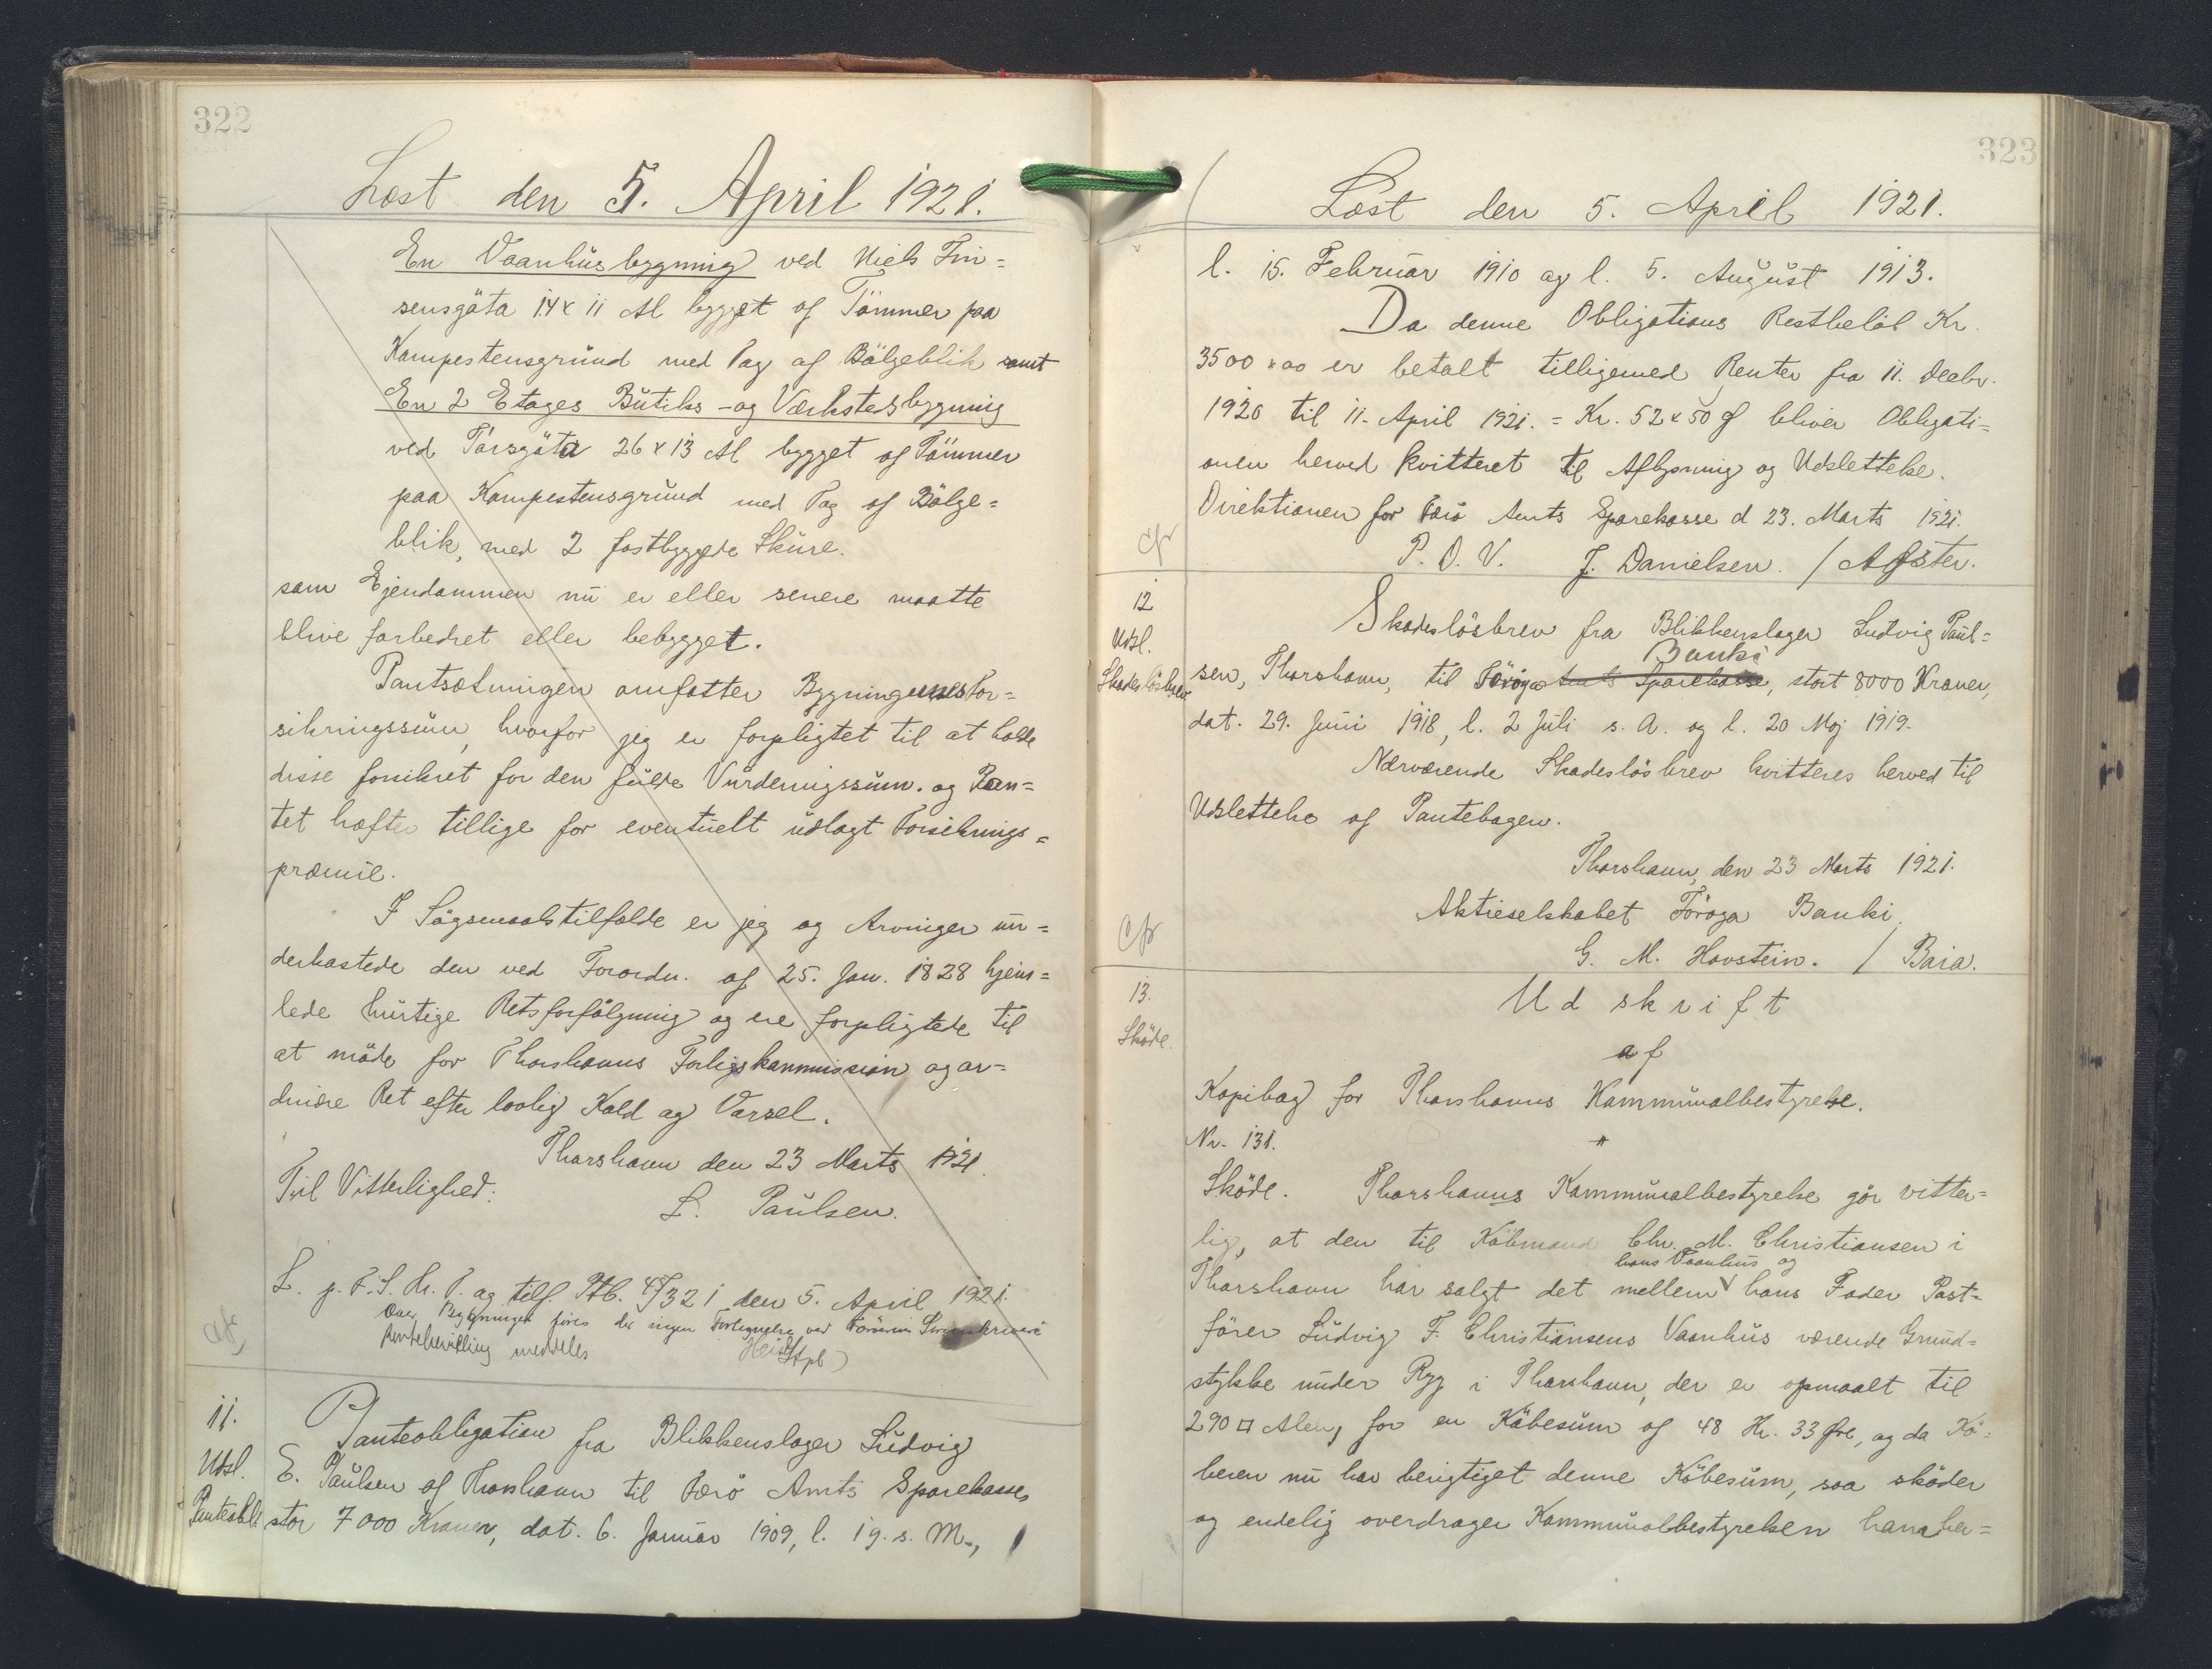 322
Læst den 5. April 1921.
En Vaanhusbygning ved Niels Fin=
sensgöta 14 x 11 Al bygget af Tömmer paa
Kampestensgrund med Tag af Bölgeblik samt
En 2 Etages Butiks- og Værkstedsbygning
ved Tórsgöta 26 x 13 Al bygget af Tömmer
paa Kampestensgrund med Tag af Bölge=
blik, med 2 fastbyggede Skure.
som Ejendommen nu er eller senere maatte
blive forbedret eller bebygget.
Pantsætningen omfatter Bygningernes For=
sikringssum, hvorfor jeg er forpligtet til at holde
disse forsikret for den fulde Vurderingssum. og Pan=
tet hæfter tillige for eventuelt udlagt Forsikrings=
præmie.
I Sögsmaalstilfælde er jeg og Arvinger un=
derkastede den ved Forordn. af 25. Jan. 1828 hjem=
lede hurtige Retsforfölgning og ere forpligtede til
at möde for Thorshavns Forligskommission og or=
dinære Ret efter lovlig Kald og Varsel.
Thorshavn den 23 Marts 1921.
Til Vitterlighed:
L. Paulsen.
L. p. F. S. Hr. T. og tilf. Ptb. 45/321 den 5. April 1921.
Over Bygningen föres der ingen Fortegnelse ved Færöernes Sorenskriveri
meddeles
cfr
11.
Udsl.
Panteobl.
Panteobligation fra Blikkenslager Ludvig
E. Paulsen af Thorshavn til Færö Amts Sparekasse,
stor 7000 Kroner, dat. 6. Januar 1909, l. 19. s. M.,
323
Læst den 5. April 1921.
l. 15. Februar 1910 og l. 5. August 1913.
Da denne Obligations Restbelöb Kr.
3500 x 00 er betalt tilligemed Renter fra 11. Decbr.
1920 til 11. April 1921. = Kr. 52 x 50 Ø bliver Obligati=
onen herved kvitteret til Aflysning og Udslettelse.
Direktionen for Færö Amts Sparekasse d 23. Marts 1921.
cfr
P. D. V. J. Danielsen. /
12
Udsl.
Skadeslösbrev
Skadeslösbrev fra Blikkenslager Ludvig Paul=
Banki
sen, Thorshavn, til Föroya Amts Sparekasse, stort 8000 Kroner,
dat. 29. Juni 1918, l. 2 Juli s. A. og l. 20 Maj 1919.
Nærværende Skadeslösbrev kvitteres herved til
Udslettelse af Pantebogen.
Thorshavn, den 23 Marts 1921.
Aktieselskabet Föroya Banki.
cfr
G. M. Hovstein. /
13.
Sköde.
Udskrift
af
Kopibog for Thorshavns Kommunalbestyrelse.
Nr. 131.
Sköde. Thorshavns Kommunalbestyrelse gör vitter=
lig, at den til Köbmand Chr. M. Christiansen i
hans Vaanhus og
Thorshavn har solgt det mellem hans Fader Post=
förer Ludvig F. Christiansens Vaanhus værende Grund=
stykke under Ryg i Thorshavn, der er opmaalt til
290 □ Alen, for en Köbesum af 48 Kr. 33 Øre, og da Kö=
beren nu har berigtiget denne Köbesum, saa sköder
og endelig overdrager Kommunalbestyrelsen ham her=